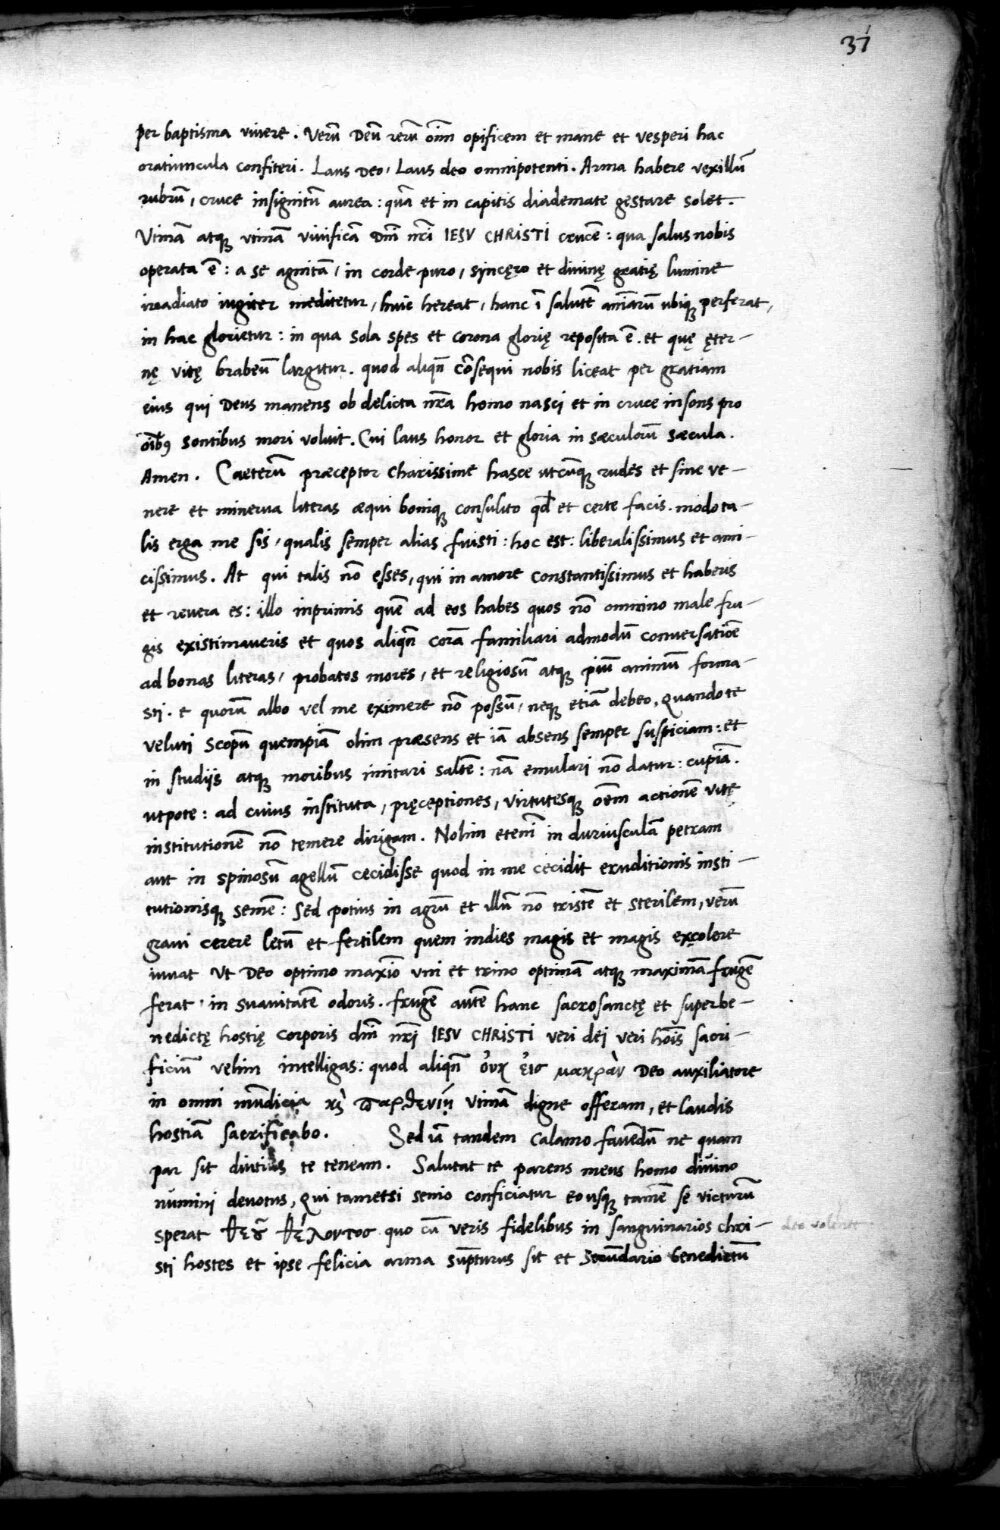 31
per baptisma vivere. Verũ Deũ rerũ oĩm opificem et mane et vesperi hac
oratiuncula confiteri. Laus Deo, Laus deo omnipotenti. Arma habere vexillũ
rubrũ, cruce insignitũ aurea: quã et in capitis diademate gestare solet.
Vtinã atq; vtinã vivificã Dñi nr̃i IESV CHRISTI crucẽ: qua salus nobis
operata ẽ: a se agnitã, in corde puro, syncęro et divinę gratię lumine
irradiato iugiter meditetur, huic hereat, hanc ĩ salutẽ aĩarũ ubiq; perferat,
in hac glorietur: in qua sola spes et corona glorię reposita ẽ. et quę ęter-
nę vitę brabeũ largitur. quod aliqñ cõsequi nobis liceat per gratiam
eius qui Deus manens ob delicta nr̃a homo nasci et in cruce insons pro
oĩb9 sontibus mori voluit. Cui laus honor et gloria in sæculorũ sæcula.
Amen. Caeterũ præceptor charissime hasce utcũq; rudes et sine ve-
nere et minerva literas æqui boniq; consulito qđ et certe facis. modo ta-
lis erga me sis, qualis semper alias fuisti: hoc est: liberalissimus et ami-
cissimus. At qui talis nõ esses, qui in amore constantissimus et haberis
et revera es: illo inprimis quẽ ad eos habes quos nõ omnino male fru-
gis existimaveris et quos aliqñ corã familiari admodũ conversatiõe
ad bonas literas, probatos mores, et religiosũ atq; piũ animũ forma-
sti. e quorũ albo vel me eximere nõ possũ, neq; etiã debeo, quando te
veluti scopũ quempiã olim præsens et iã absens semper suspiciam: et
in studijs atq; moribus imitari saltẽ: nã emulari nõ datur: cupiã.
utpote: ad cuius instituta, pręceptiones, virtutesq; oẽm actionẽ vitę
institutionẽ nõ temere dirigam. Nolim eteni in duriusculã petram
aut in spinosũ agellũ cecidisse quod in me cecidit eruditionis insti-
tutionisq; semẽ: Sed potius in agrũ et illũ nõ tristẽ et sterilem, verũ
gravi cerere letũ et fertilem quem indies magis et magis excolere
iuvat ut Deo optimo maxĩo uni et trino optimã atq; maximã frugẽ
ferat, in suavitatẽ odoris. frugẽ autẽ hanc sacrosanctę et superbe-
nedictę hostię corporis dñi nr̃i IESV CHRISTI veri dei veri hoĩs sacri-
ficiũ velim intelligas: quod aliqñ οὐκ εἰσ μακρὰν Deo auxiliatore
in omni mũdicia παρθενίῃ utinã digne offeram, et laudis
hostiã sacrificabo. Sed iã tandem calamo favẽdũ ne quam
par sit diutius te teneam. Salutat te parens meus homo divino
numini devotus, qui tametsi senio conficiatur eo usq; tamẽ se victurũ
sperat θεοῦ θέλοντοσ quo cũ veris fidelibus in sanguinarios chri-
deo volente
sti hostes et ipse felicia arma sũpturus sit et secundario benedictũ